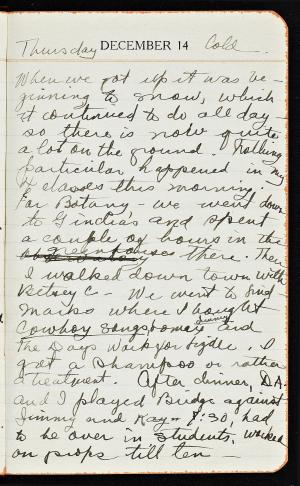 Thursday DECEMBER 14 Cold
When we got up it was be-
ginning to snow, which
it continued to do all day -
so there is now quite
a lot on the ground. Nothing
particular happened in my
4 classes this morning
For Botany - we went down
to and spent
a couple of hours in the
greenhouses there. Then
I walked down town with
Betsey C - We went to Lind-
marks where I bought
Cowboy Songs for and
The Days Work for . I
got a shampoo or rather
a treatment. After dinner, D.A.
and I played Bridge against
Jimmy and Kay - 7:30, had
to be over in Students', worked
on props till ten -